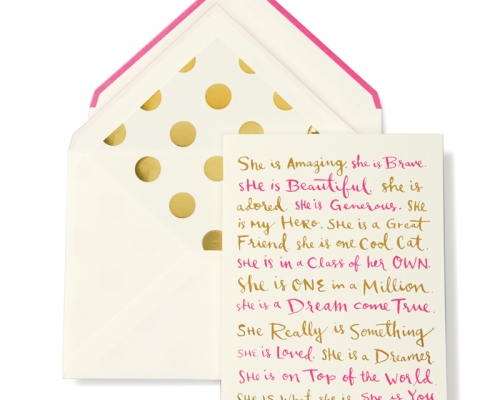 She is Amazing. she is Brave.
SHe is Beautiful. she is
adored. SHE is Generous. SHe
is my Hero. SHe is a Great
Friend she is one Cool Cat.
SHE is in a Class of her OWN.
SHe is ONE in a Million.
SHe is a Dream come True.
SHE Really is Something
SHe is Loved. SHe is a Dreamer.
SHE is on Top of the World.
SHe is what she is. She is You